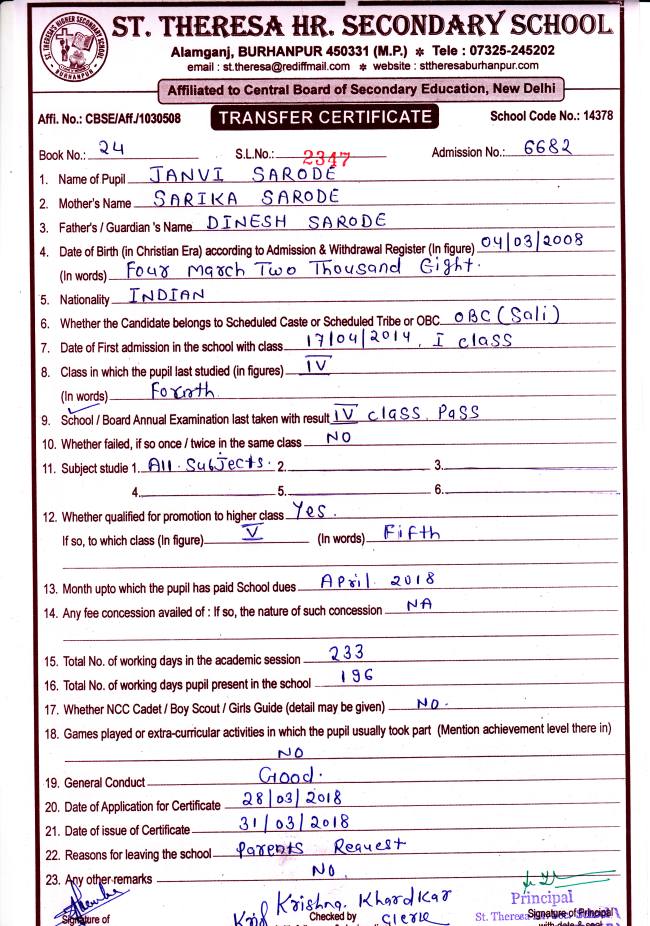 ST. THERESA HR. SECONDARY SCHOOL
Alamganj, BURHANPUR 450331 (M.P.) * Tele : 07325-245202
email : st.theresa@rediffmail.com * website : sttheresaburhanpur.com
Affiliated to Central Board of Secondary Education, New Delhi
Affi. No.: CBSE/Aff./1030508 TRANSFER CERTIFICATE School Code No.: 14378
Book No.: 24 S.L.No.: 2347 Admission No.: 6682
1. Name of Pupil JANVI SARODE
2. Mother's Name SARIKA SARODE
3. Father's / Guardian 's Name DINESH SARODE
4. Date of Birth (in Christian Era) according to Admission & Withdrawal Register (In figure) 04/03/2008
(In words) Four March Two Thousand Eight.
5. Nationality INDIAN
6. Whether the Candidate belongs to Scheduled Caste or Scheduled Tribe or OBC OBC (Sali)
7. Date of First admission in the school with class 17/04/2014, I class
8. Class in which the pupil last studied (in figures) IV
(In words) Forth
9. School / Board Annual Examination last taken with result IV class Pass
10. Whether failed, if so once / twice in the same class NO
11. Subject studie 1. All Subjects. 2. 3.
4. 5. 6.
12. Whether qualified for promotion to higher class Yes.
If so, to which class (In figure) V (In words) Fifth
13. Month upto which the pupil has paid School dues April 2018
14. Any fee concession availed of : If so, the nature of such concession NA
15. Total No. of working days in the academic session 233
16. Total No. of working days pupil present in the school 196
17. Whether NCC Cadet / Boy Scout / Girls Guide (detail may be given) NO.
18. Games played or extra-curricular activities in which the pupil usually took part (Mention achievement level there in)
NO
19. General Conduct Good.
20. Date of Application for Certificate 28/03/2018
21. Date of issue of Certificate 31/03/2018
22. Reasons for leaving the school Parents Request
23. Any other remarks NO
Krishna Khardkar Principal
Signature of Checked by Clerk St. Theresa Signature of Principal
with date & seal